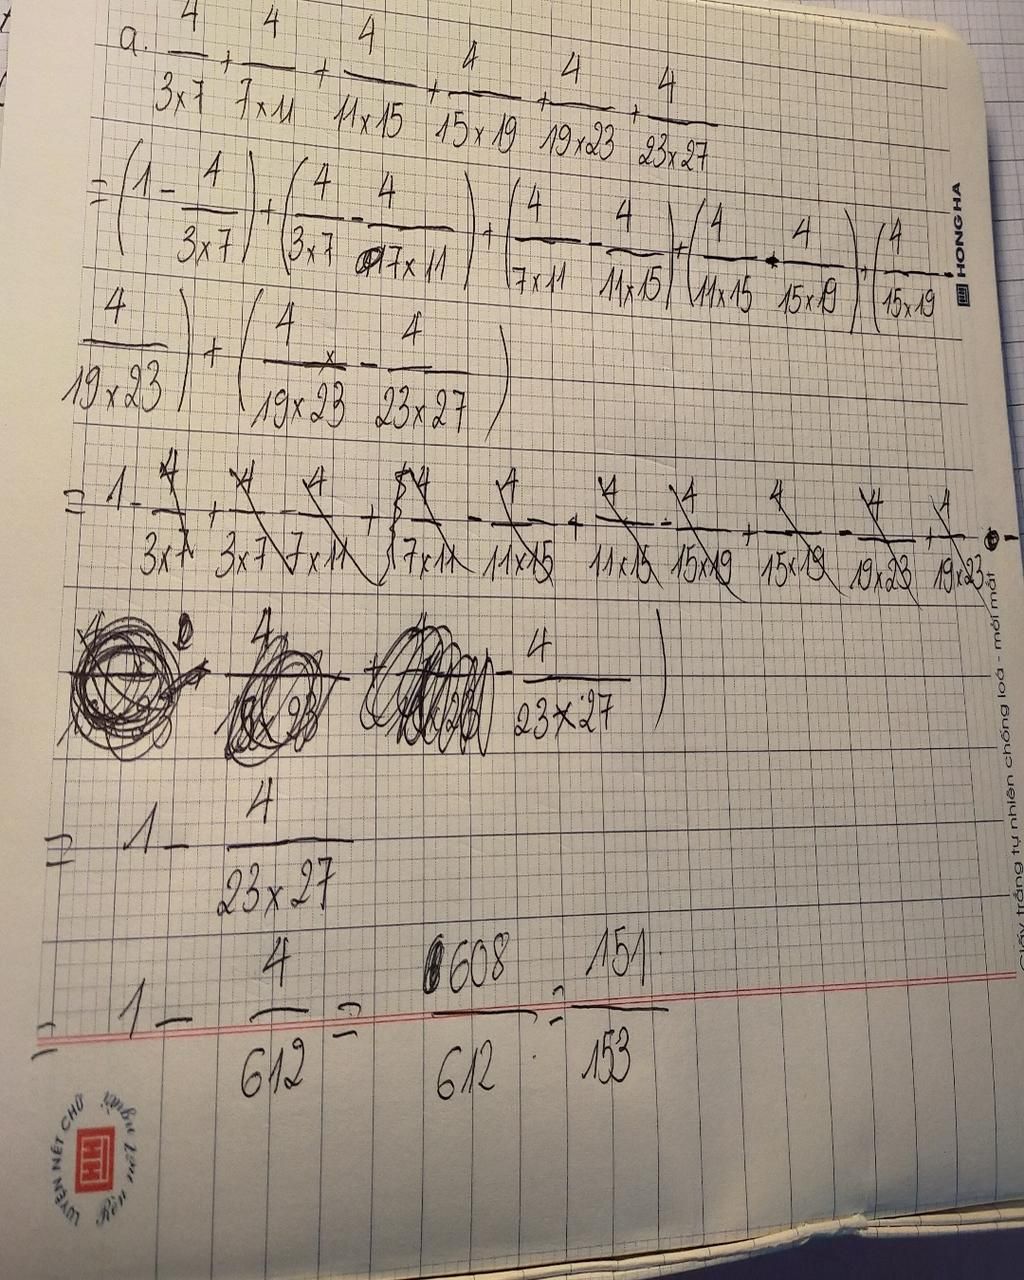 a. 4/3×7 + 4/7×11 + 4/11×15 + 4/15×19 + 4/19×23 + 4/23×27
= (1 - 4/3×7) + (4/3×7 - 4/7×11) + (4/7×11 - 4/11×15) + (4/11×15 - 4/15×19) + (4/15×19 -
4/19×23) + (4/19×23 - 4/23×27)
= 1 - 4/3×7 + 4/3×7 - 4/7×11 + 4/7×11 - 4/11×15 + 4/11×15 - 4/15×19 + 4/15×19 - 4/19×23 + 4/19×23 -
- 4/23×27 )
= 1 - 4/23×27
= 1 - 4/612 = 608/612 = 151/153
HONG HA
Giấy trắng tự nhiên chống loá - mỏi mắt
LUYỆN NÉT CHỮ
Rèn nết người